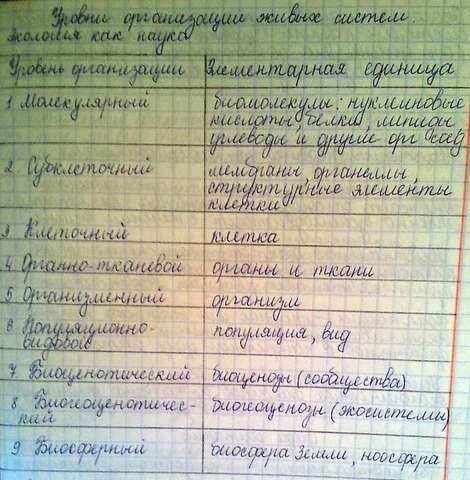 Уровни организации живых систем.
Экология как наука
Уровень организации Элементарная единица
1 Молекулярный биомолекулы: нуклеиновые
кислоты, белки, липиды,
углеводы и другие орг соед
2. Субклеточный мембраны, органеллы,
структурные элементы
клетки
3 Клеточный клетка
4 Органно-тканевой органы и ткани
5 Организменный организм
6 Популяционно- популяция, вид
видовой
7 Биоценотический биоценозы (сообщества)
8 Биогеоценотичес- биогеоценозы (экосистемы)
кий
9 Биосферный биосфера Земли, ноосфера